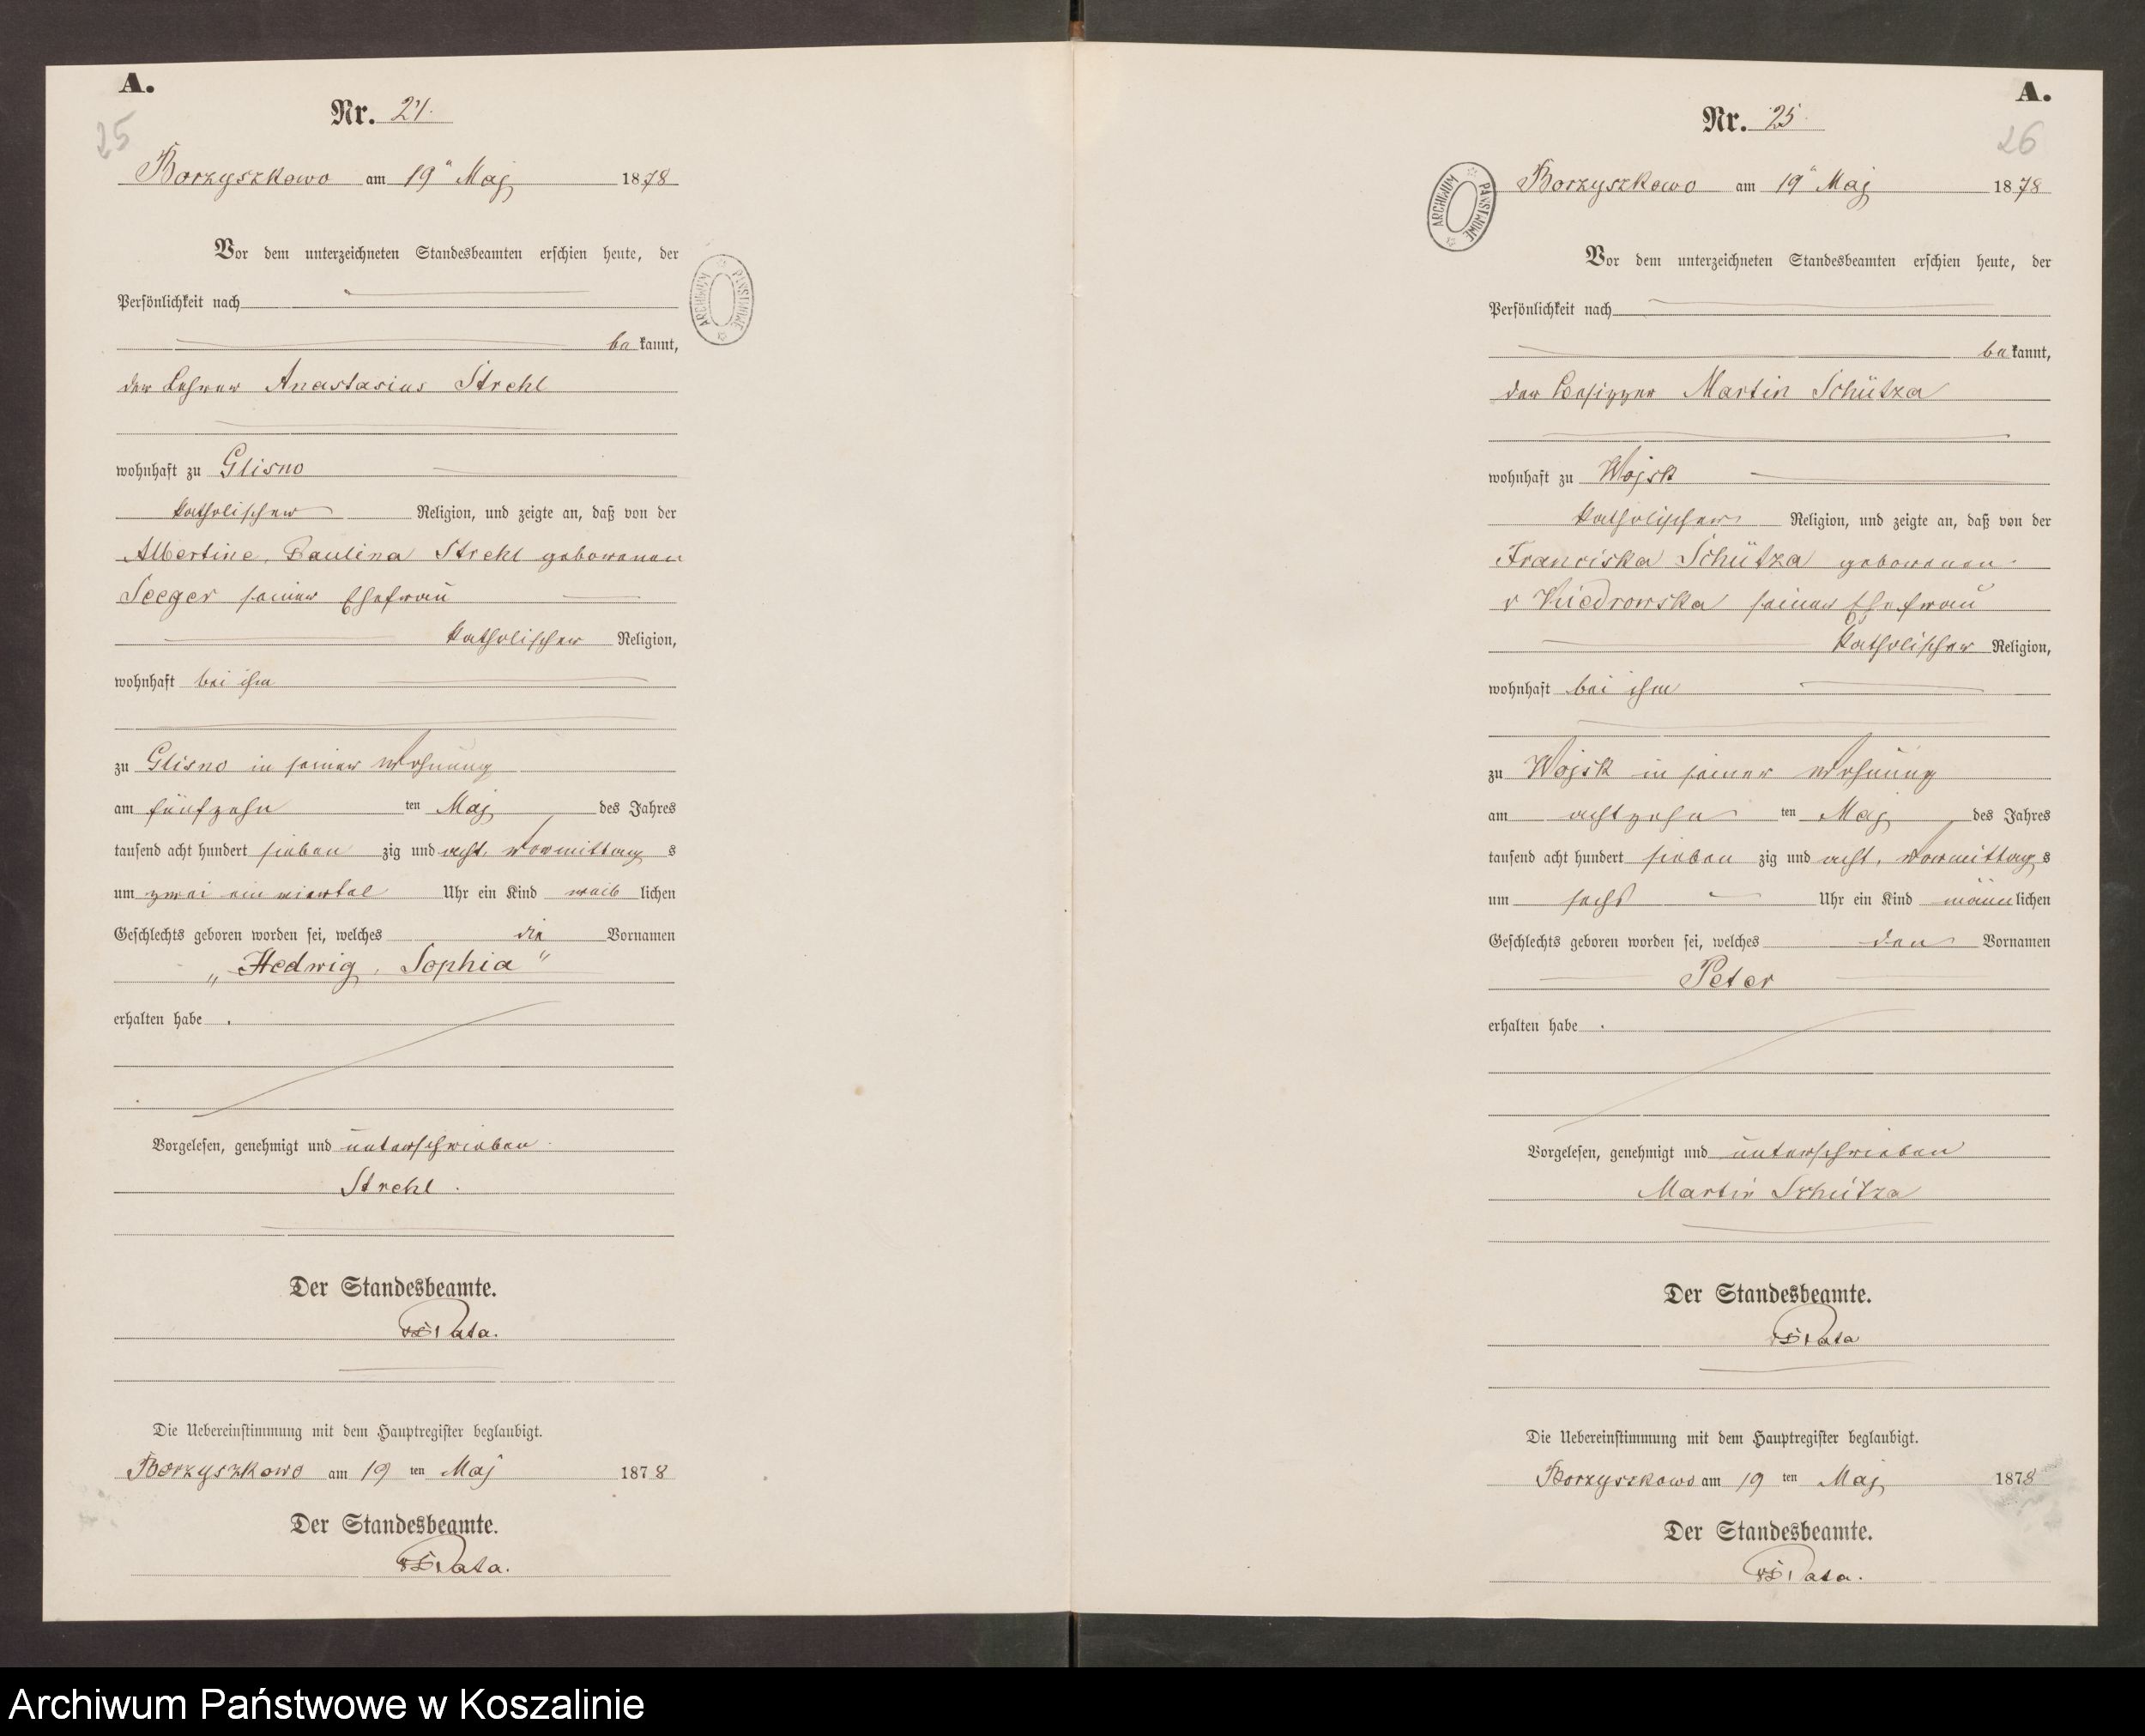 A.
25
Nr. 24.
Borzyszkowo am 19" Maj 1878
Vor dem unterzeichneten Standesbeamten erschien heute, der
Persönlichkeit nach
be kannt,
der Lehrer Anastasius Strehl
wohnhaft zu Glisno
katholischer Religion, und zeigte an, daß von der
Albertine, Paulina Strehl geborenen
Seeger seiner Ehefrau
katholischer Religion,
wohnhaft bei ihm
zu Glisno in seiner Wohnung
am fünfzehn ten Maj des Jahres
tausend acht hundert sieben zig und acht, Vormittag s
um zwei ein viertel Uhr ein Kind weib lichen
Geschlechts geboren worden sei, welches die Vornamen
„Hedwig, Sophia"
erhalten habe .
Vorgelesen, genehmigt und unterschrieben.
Strehl.
Der Standesbeamte.
Pata.
Die Uebereinstimmung mit dem Hauptregister beglaubigt.
Borzyszkowo am 19 ten Maj 1878
Der Standesbeamte.
Pata.
ARCHIWUM PAŃSTWOWE
A.
26
Nr. 25.
Borzyszkowo am 19" Maj 1878
Vor dem unterzeichneten Standesbeamten erschien heute, der
Persönlichkeit nach
be kannt,
der Besitzer Martin Schütza
wohnhaft zu Wojsk
katholischer Religion, und zeigte an, daß von der
Franciska Schütza geborenen
v Kiedrowska seiner Ehefrau
katholischer Religion,
wohnhaft bei ihm
zu Wojsk in seiner Wohnung
am achtzehn ten Maj des Jahres
tausend acht hundert sieben zig und acht, Vormittag s
um sechs Uhr ein Kind männ lichen
Geschlechts geboren worden sei, welches den Vornamen
Peter
erhalten habe .
Vorgelesen, genehmigt und unterschrieben
Martin Schütza
Der Standesbeamte.
Pata
Die Uebereinstimmung mit dem Hauptregister beglaubigt.
Borzyszkowo am 19 ten Maj 1878
Der Standesbeamte.
Pata.
ARCHIWUM PAŃSTWOWE
Archiwum Państwowe w Koszalinie